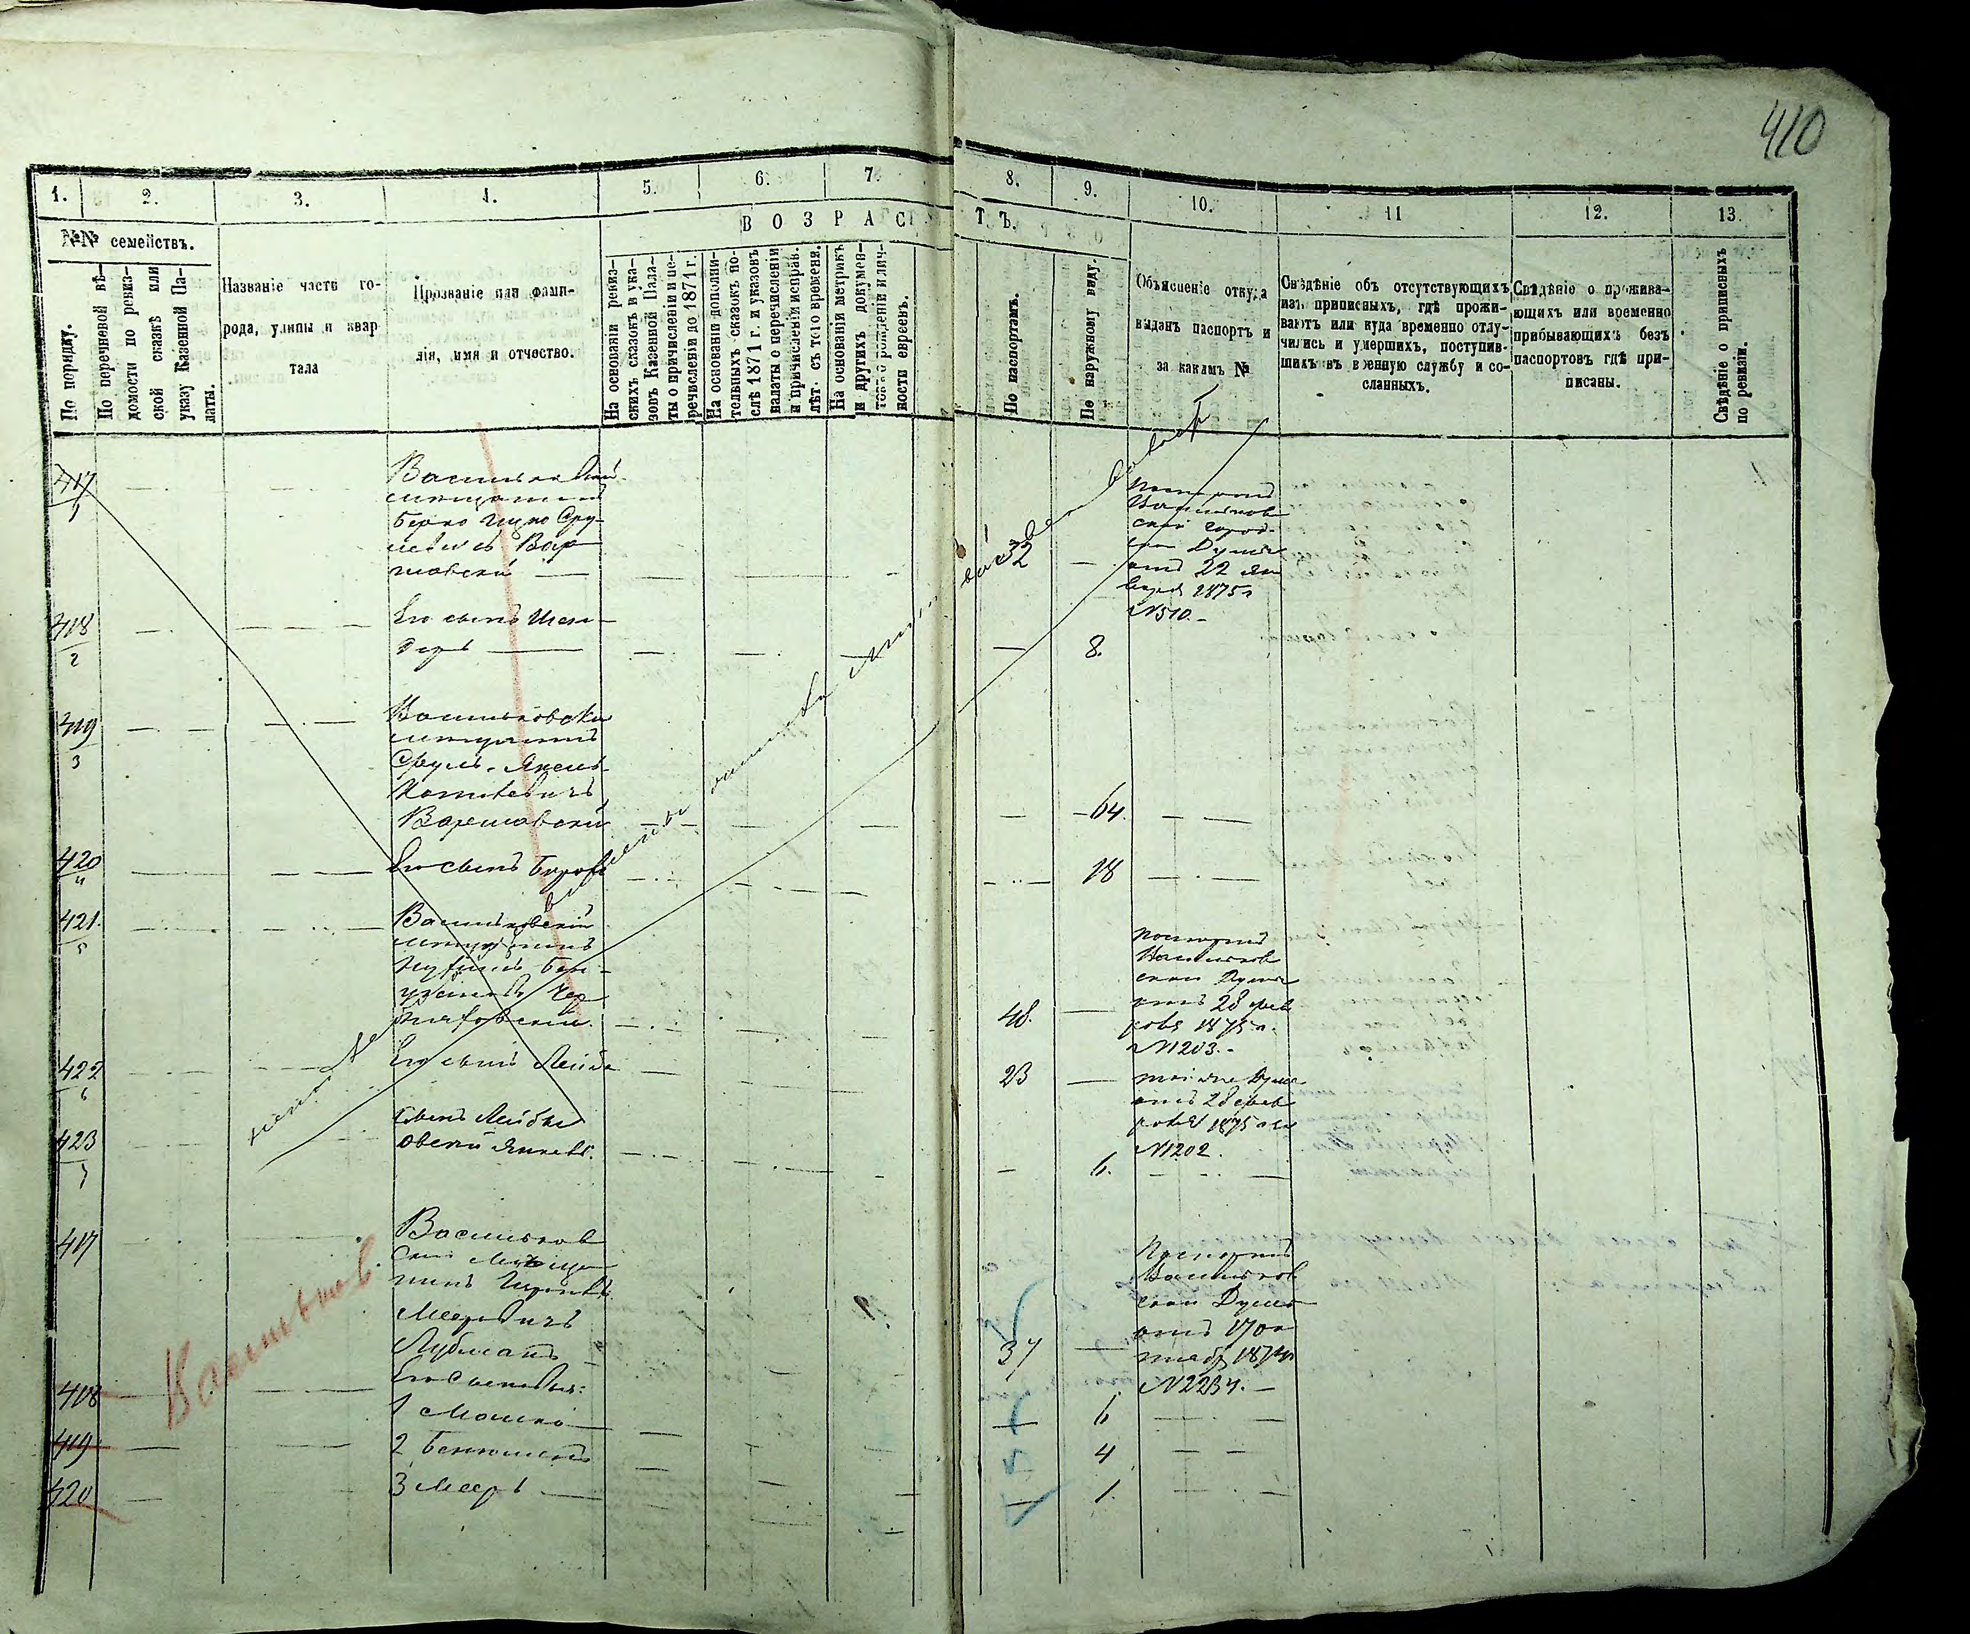 410
1.
2.
3.
4.
5.
6.
7.
8.
9.
10.
11
12.
13.
№№ семействъ.
ВОЗРАС
ТЪ.
По порядку.
По перечневой вѣ-
домости по ревиз-
ской сказкѣ или
указу Казенной Па-
латы.
Названіе части го-
рода, улицы и квар
тала
Прозваніе или фами-
лія, имя и отчество.
На основаніи ревиз-
скихъ сказокъ и ука-
зовъ Казенной Пала-
ты о причисленіи и пе-
речисленіи до 1871 г.
На основаніи дополни-
тельныхъ сказокъ по-
слѣ 1871 г. и указовъ
палаты о перечисленіи
и причисленіи исправ.
лѣт. съ того времени.
На основаніи метрикъ
и другихъ докумен-
товъ о рожденіи и лич-
ности евреевъ.
По паспортамъ.
По наружному виду.
Объясненіе откуда
выданъ паспортъ и
за какимъ №
Свѣдѣніе объ отсутствующихъ
изъ приписныхъ, гдѣ прожи-
ваютъ или куда временно отлу-
чились и умершихъ, поступив-
шихъ въ военную службу и со-
сланныхъ.
Свѣдѣніе о прожива-
ющихъ или временно
прибывающихъ безъ
паспортовъ гдѣ при-
писаны.
Свѣдѣніе о приписныхъ
по ревизіи.
417
1
мѣщанинъ
Берко Ицко Сру-
левичъ Вар
шавскій
32
Паспортъ
Васильков
ской город-
ской Думы
отъ 22 Ян
варя 1875 г
№510.
418
2
Его сынъ Шен
8.
419
3
Васильковскій
мѣщанинъ
Сруль-Янкель
Варшавскій
64.
420
4
Его сынъ Борохъ
18
421.
5
Васильковскій
мѣщанинъ
48.
паспортъ
Васильков
ской Думы
отъ 28 фев
раля 1875 г.
№1203.
422
6
Его сынъ Лейба
23
той же Думы
отъ 28 фев
раля 1875 года
№1202.
423
7
Сынъ Лейбы
Янкель.
6.
Васильков
417
Васильков
скій Мѣща
нинъ
Мееровичъ
Лубманъ
37
Паспортъ
Васильков
ской Думы
отъ 17 ок
тября 1874 г
№2234.
418
Его сыновья:
1 Мошко
6
419
2 Беньюминъ
4
420
3 Мееръ
1.